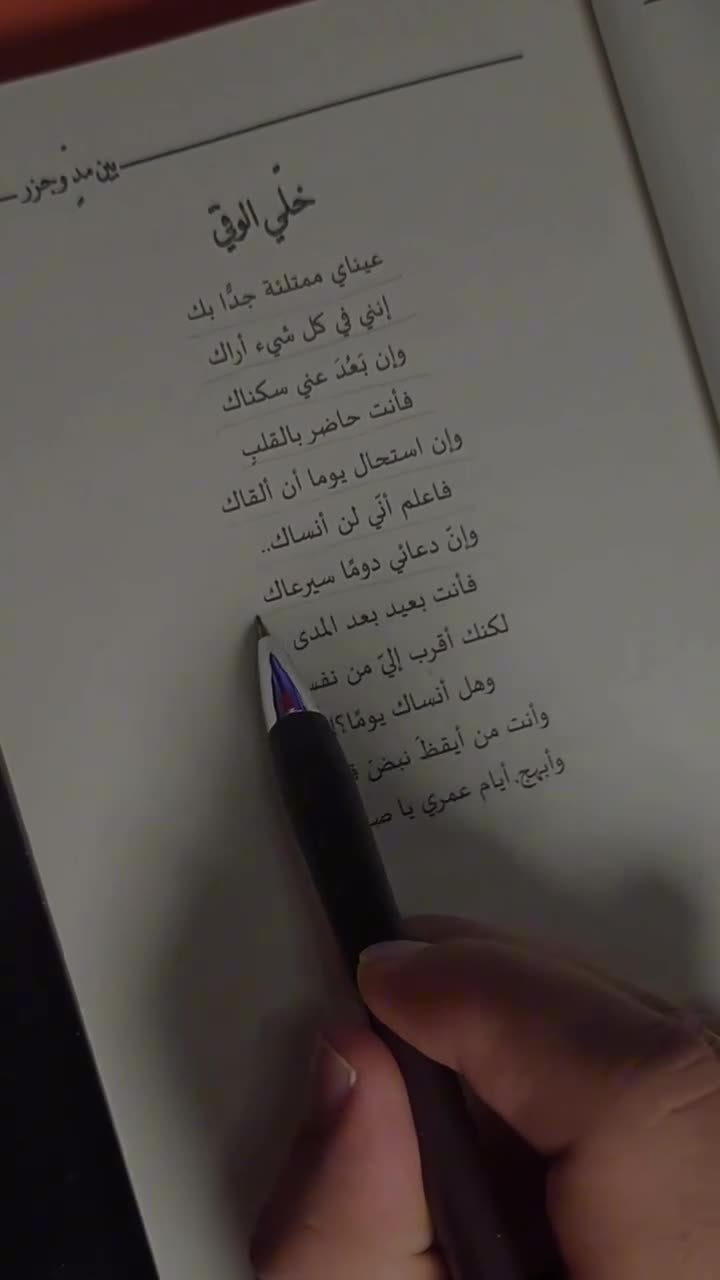 بين مدٍ وجزر
خلّي الوفيّ
عيناي ممتلئة جدًّا بك
إنني في كل شيء أراك
وإن بَعُدَ عني سكناك
فأنت حاضر بالقلبِ
وإن استحال يوما أن ألقاك
فاعلم أنّي لن أنساك..
وإنّ دعائي دومًا سيرعاك
فأنت بعيد بعد المدى
لكنك أقرب إليّ من
وهل أنساك يومًا؟!
وأنت من أيقظَ نبضَ
وأبهج أيام عمري يا